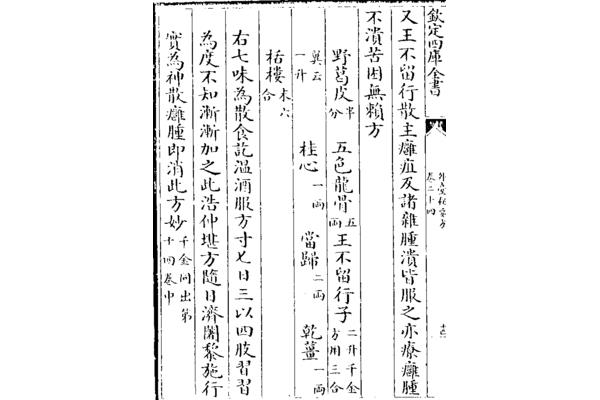 欽定四庫全書
外臺秘要方
卷二十四
又王不留行散主癰疽及諸雜腫潰皆服之亦療癰腫
不潰苦困無賴方
野葛皮半分 五色龍骨五兩 王不留行子二升千金方用三合
翼云一升 桂心一兩 當歸二兩 乾薑一兩
栝樓末六合
右七味為散食訖溫酒服方寸匕日三以四肢習習
為度不知漸漸加之此浩仲堪方隨日濟闍黎施行
實為神散癰腫即消此方妙千金同出第十四卷中